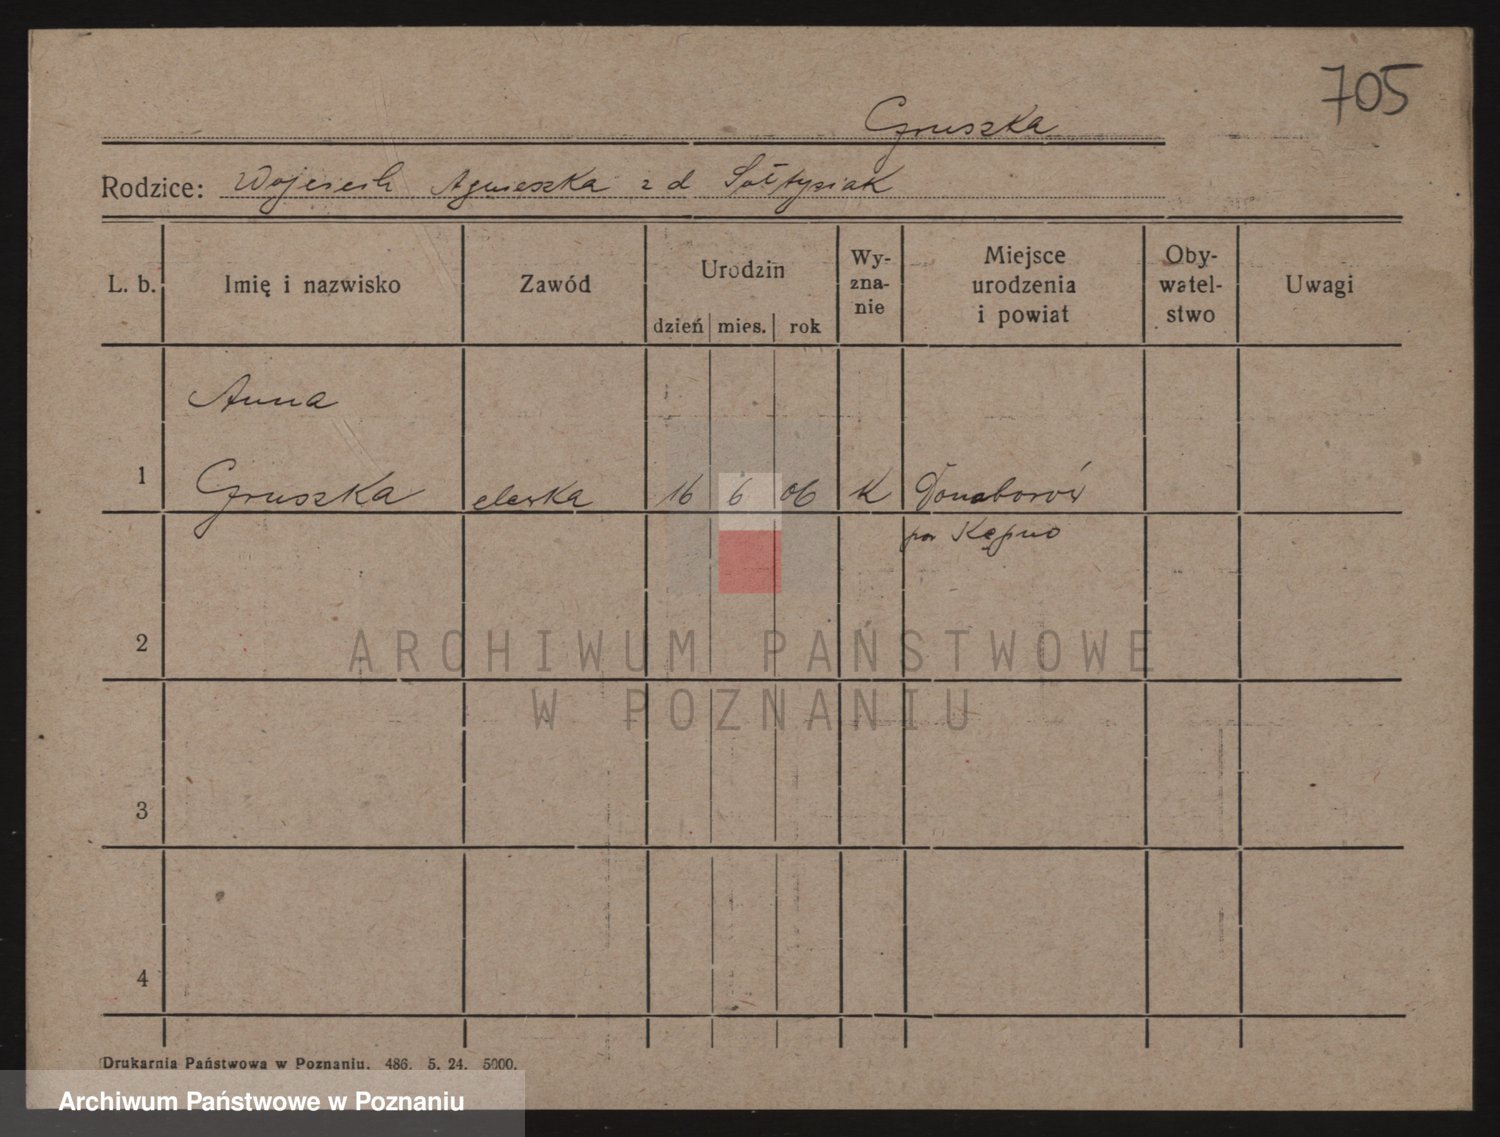 705
Gruszka
Rodzice: Wojciech Agnieszka z d Sołtysiak
L. b. Imię i nazwisko Zawód Urodzin dzień mies. rok Wy-zna-nie Miejsce urodzenia i powiat Oby-watel-stwo Uwagi
Anna
1 Gruszka elewka 16 6 06 K Donaborów
pow Kępno
2
3
4
ARCHIWUM PAŃSTWOWE
W POZNANIU
Drukarnia Państwowa w Poznaniu. 486. 5. 24. 5000.
Archiwum Państwowe w Poznaniu